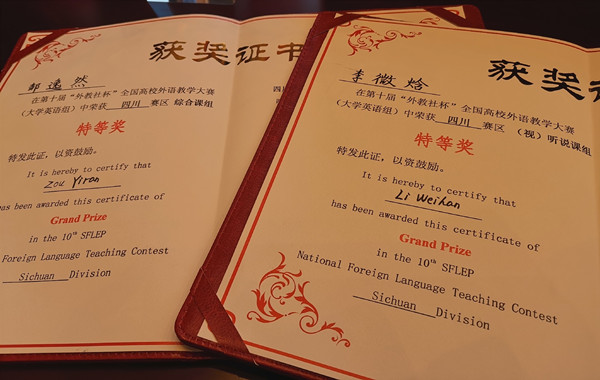 获奖证书
邹逸然
在第十届“外教社杯”全国高校外语教学大赛
（大学英语组）中荣获 四川 赛区 综合课组
特等奖
特发此证，以资鼓励。
It is hereby to certify that
Zou Yiran
has been awarded this certificate of
Grand Prize
in the 10th SFLEP
Foreign Language Teaching Contest
Sichuan Division
获奖
李微焓
在第十届“外教社杯”全国高校外语教学大赛
（大学英语组）中荣获 四川 赛区 （视）听说课组
特等奖
特发此证，以资鼓励。
It is hereby to certify that
Li Weihan
has been awarded this certificate of
Grand Prize
in the 10th SFLEP
National Foreign Language Teaching Contest
Sichuan Division